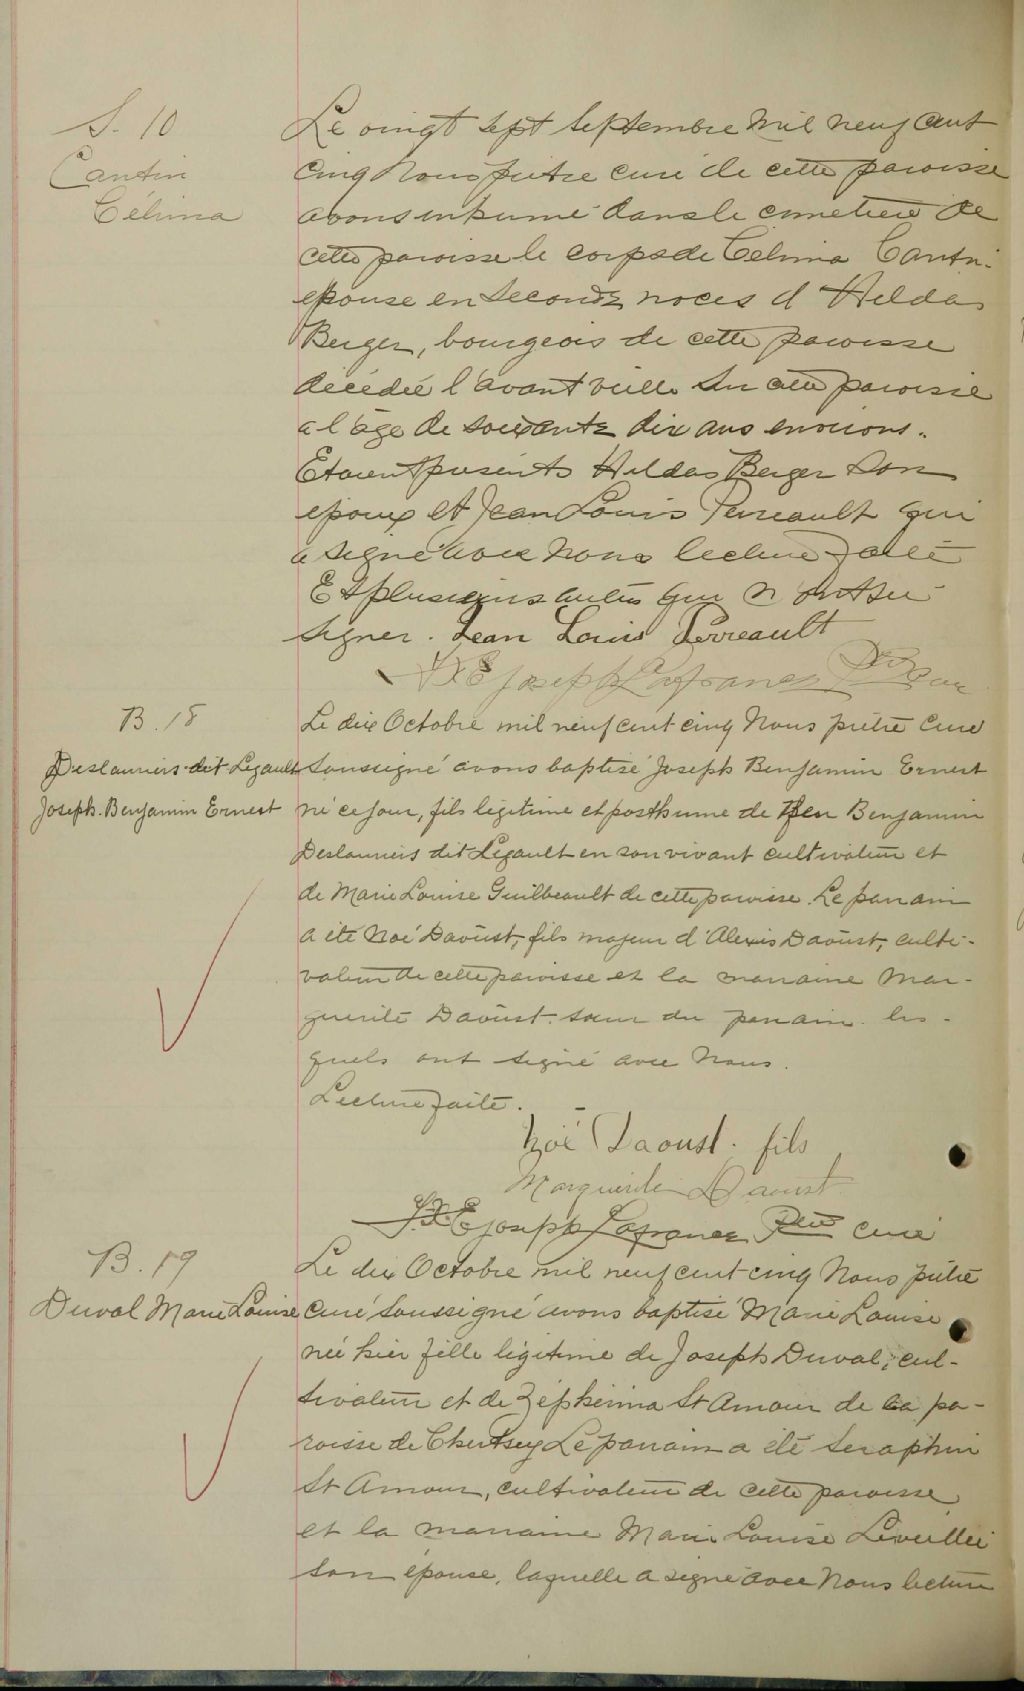 S. 10
Cantin
Célima
Le vingt sept Septembre mil neuf cent
cinq Nous prêtre curé de cette paroisse
avons inhumé dans le cimetière de
cette paroisse le corps de Célima Cantin
epouse en Secondes noces d'Heldas
Berger, bourgeois de cette paroisse
décédée l'avant veille Sur cette paroisse
a l'âge de soixante dix ans environs.
Etaient présents Heldas Berger Son
epoux et Jean Louis Perreault qui
a signé avec Nous lecture faite
Et plusieurs autres qui n'ont su
signer. Jean Louis Perreault
F.X.E Joseph Lafrance Ptre Cur
B. 18
Deslauriers dit Legault
Joseph. Benjamin Ernest
Le dix Octobre mil neuf cent cinq Nous prêtre Curé
Soussigné avons baptisé Joseph Benjamin Ernest
né ce jour, fils légitime et posthume de feu Benjamin
Deslauriers dit Legault en son vivant cultivateur et
de Marie Louise Guilbeault de cette paroisse. Le parrain
a été Noé Daoust, fils majeur d'Alexis Daoust, culti-
vateur de cette paroisse et la marraine Mar-
guerite Daoust. sœur du parrain. les-
quels ont signé avec Nous.
Lecture faite.
Noë Daoust. fils
Marguerite Daoust
F.X.E Joseph Lafrance Ptre curé
B. 19
Duval Marie Louise
Le dix Octobre mil neuf cent cinq Nous prêtre
Curé Soussigné avons baptisé Marie Louise
née hier fille légitime de Joseph Duval, cul-
tivateur et de Zéphirina St Amour de la pa-
roisse de Chertsey Le parrain a été Seraphin
St Amour, cultivateur de cette paroisse
et la marraine Marie Louise Léveillée
son épouse, laquelle a signé avec Nous lecture